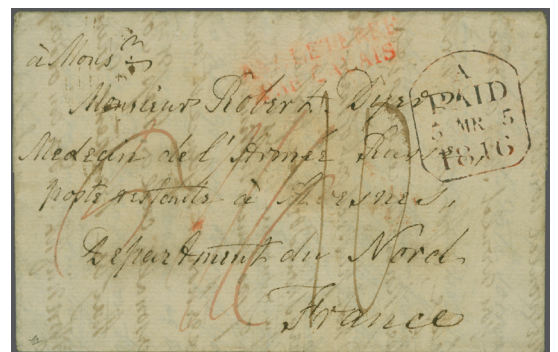 à Monsr
ANGLETERRE
PAR CALAIS
A
PAID
5 MR 5
1816
Monsieur Robert Dyer
Medecin de l'Armée Russe
poste restante à Avesnes,
Department du Nord
France